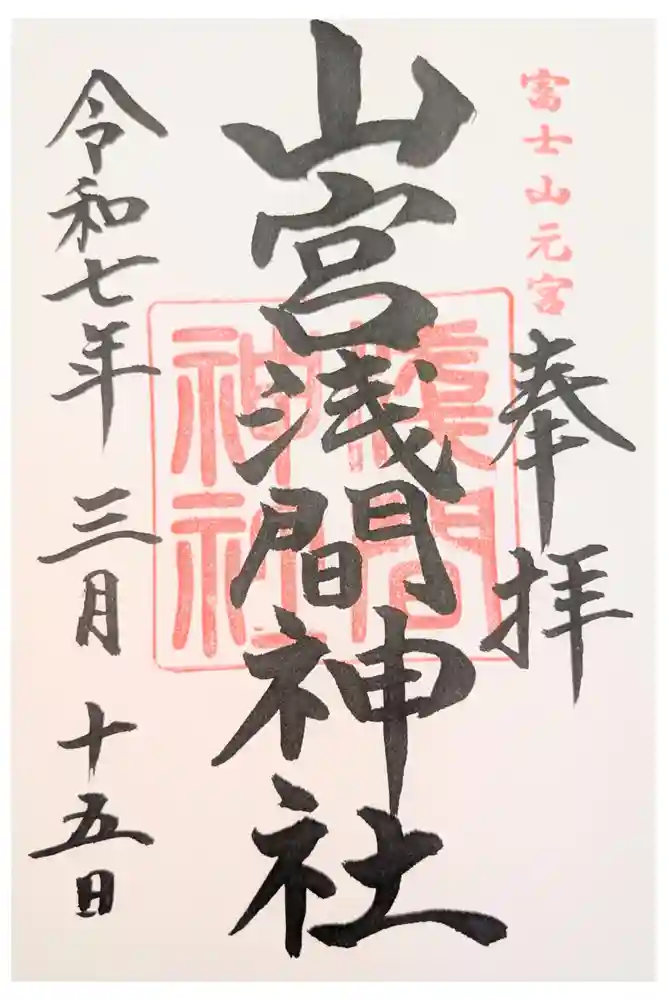 富士山元宮
奉拝
山宮浅間神社
淺間
神社
令和七年 三月 十五日